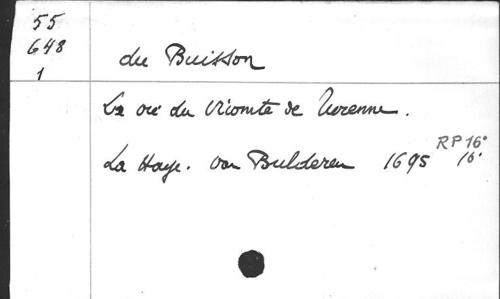 55
648
1
du Buisson
La vie du Vicomte de Turenne.
La Haye. van Bulderen 1695 RP 16°
16°